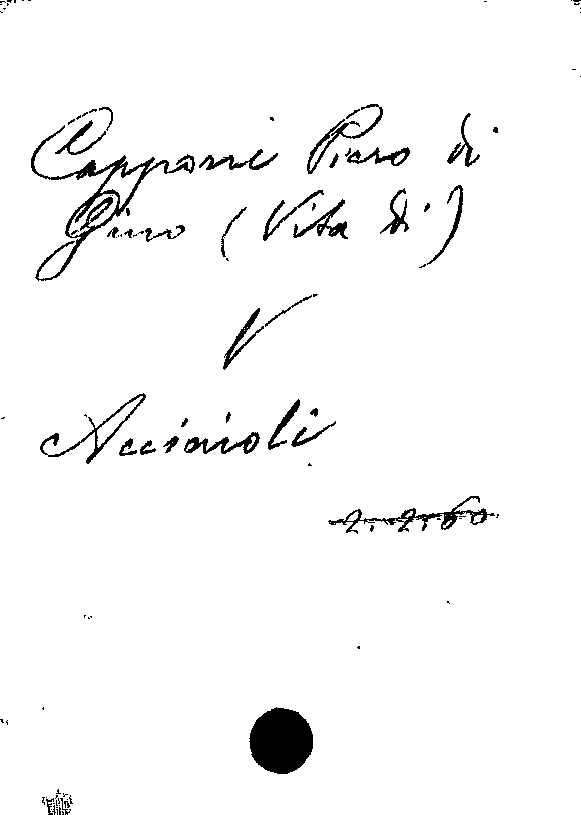 Capponi Piero di
Gino (Vita di)
V
Acciaioli
2.2.60